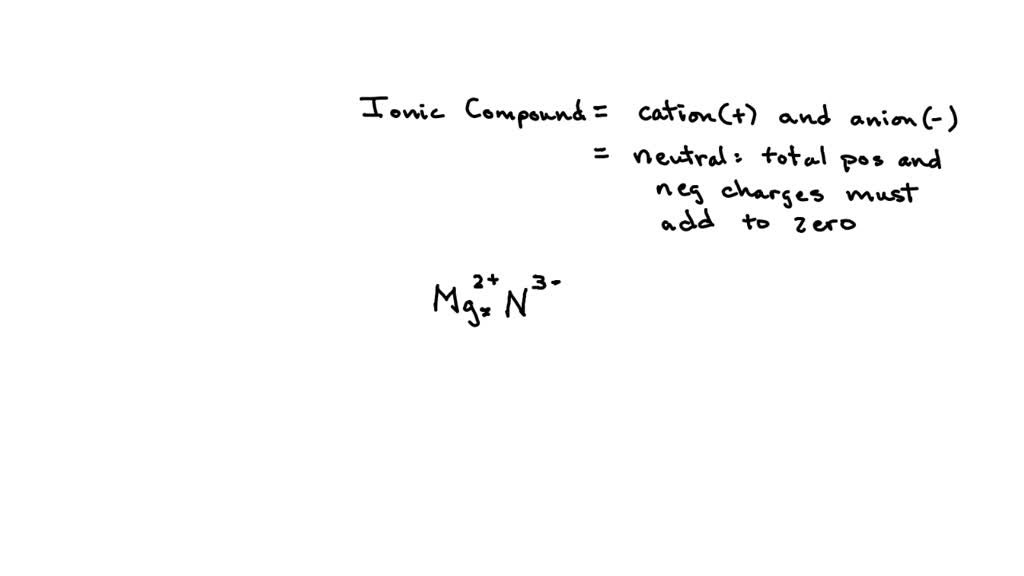 Ionic Compound = cation(+) and anion(-)
= neutral: total pos and
neg charges must
add to zero
Mgₓ²⁺ N³⁻